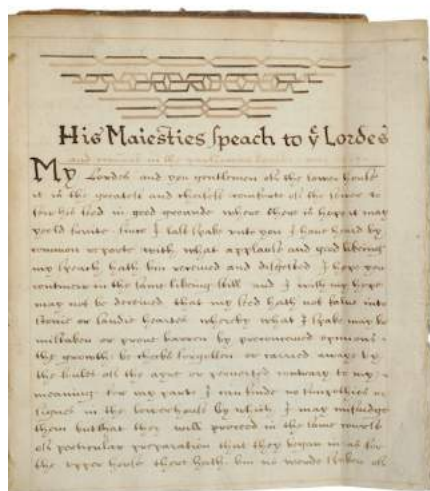 His Maiesties speach to yͤ Lordes
and comons in the parliament
My Lordes and you gentlemen of the lower house
it is the greatest and cheifest comforte of the sower to
sow his seed in good grounde where there is hope it may
yeeld fruite since I last spake unto you I have heard by
common reporte with what applause and good likeing
my speach hath bin receiued and disgested I hope you
continew in the same likeing still and I wish my hope
may not be deceived that my seed hath not falne into
stonie or sandie heartes whereby what I spake may be
mistaken or prove barren by preconceived opinions
the growth be choked forgotten or carried awaye by
the foules of the ayre or perverted contrary to my
meaning for my parte I can finde no simpthies or
signes in the lower house by which I may misiudge
them but that they will proceed in the same course
of perticular preparation that they began in as for
the upper house there hath bin no wordes spoken of